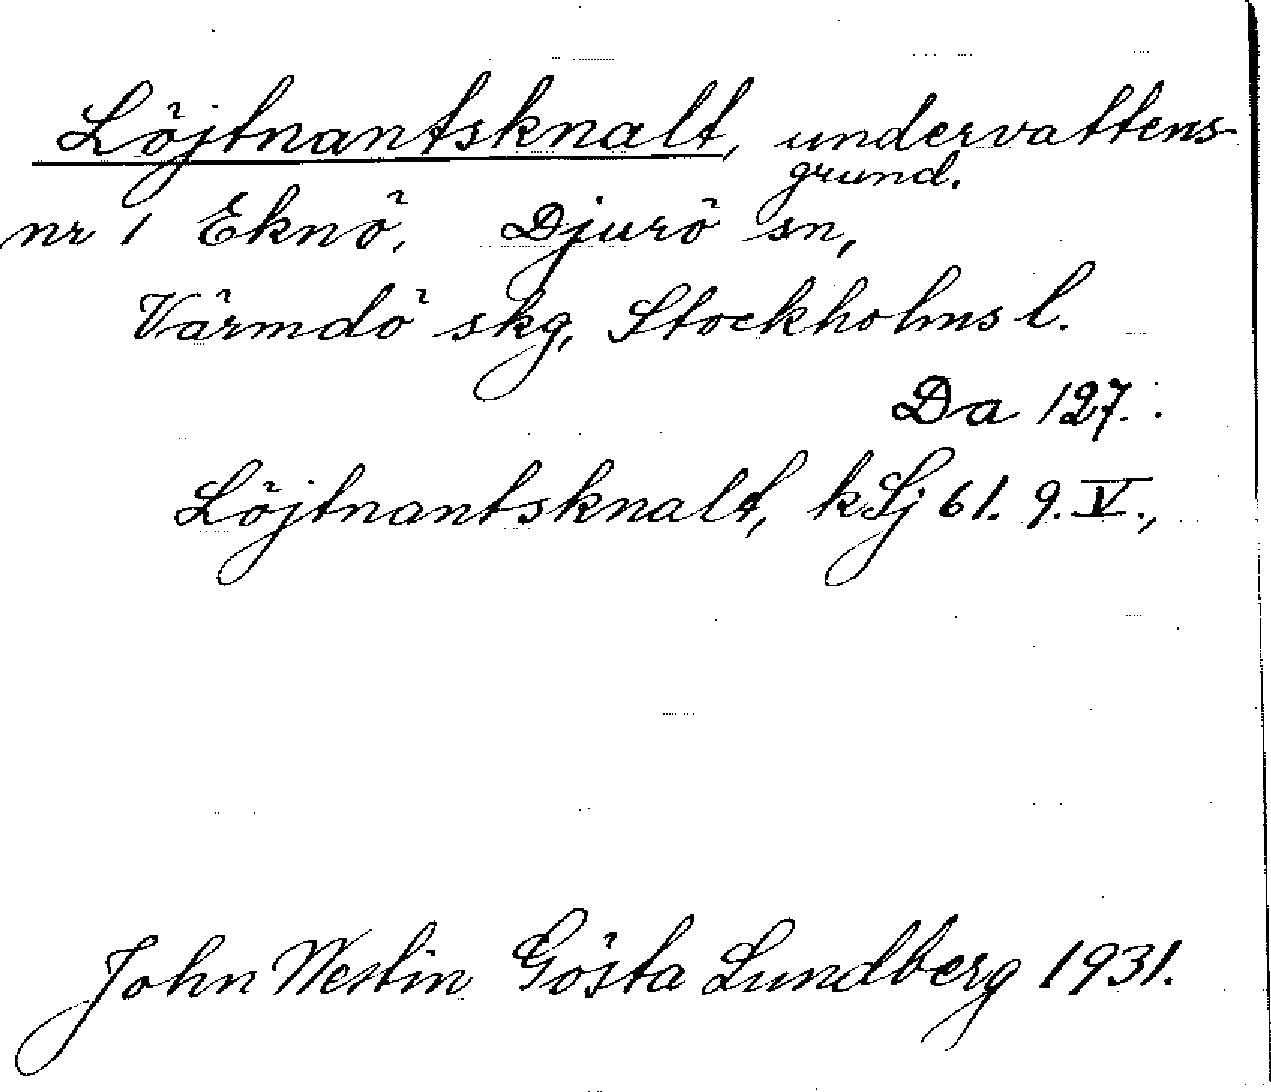 Löjtnantsknalt, undervattens-
grund.
nr 1 Eknö, Djurö sn,
Värmdö skg, Stockholms l.
Da 127.
Löjtnantsknalt, kSj 61. 9. V.,
John Westin Gösta Lundberg 1931.